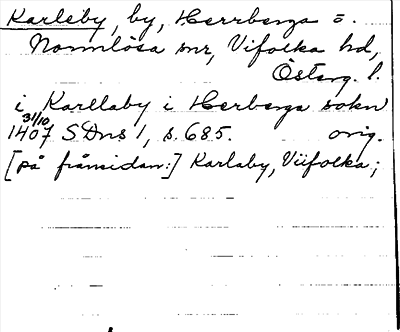 Karleby, by, Herrberga o.
Normlösa snr, Vifolka hd,
Österg. l.
i Karllaby i Herberga sokn
31/10
1407 SDns 1, s. 685. orig.
[på frånsidan:] Karlaby, Viifolka;